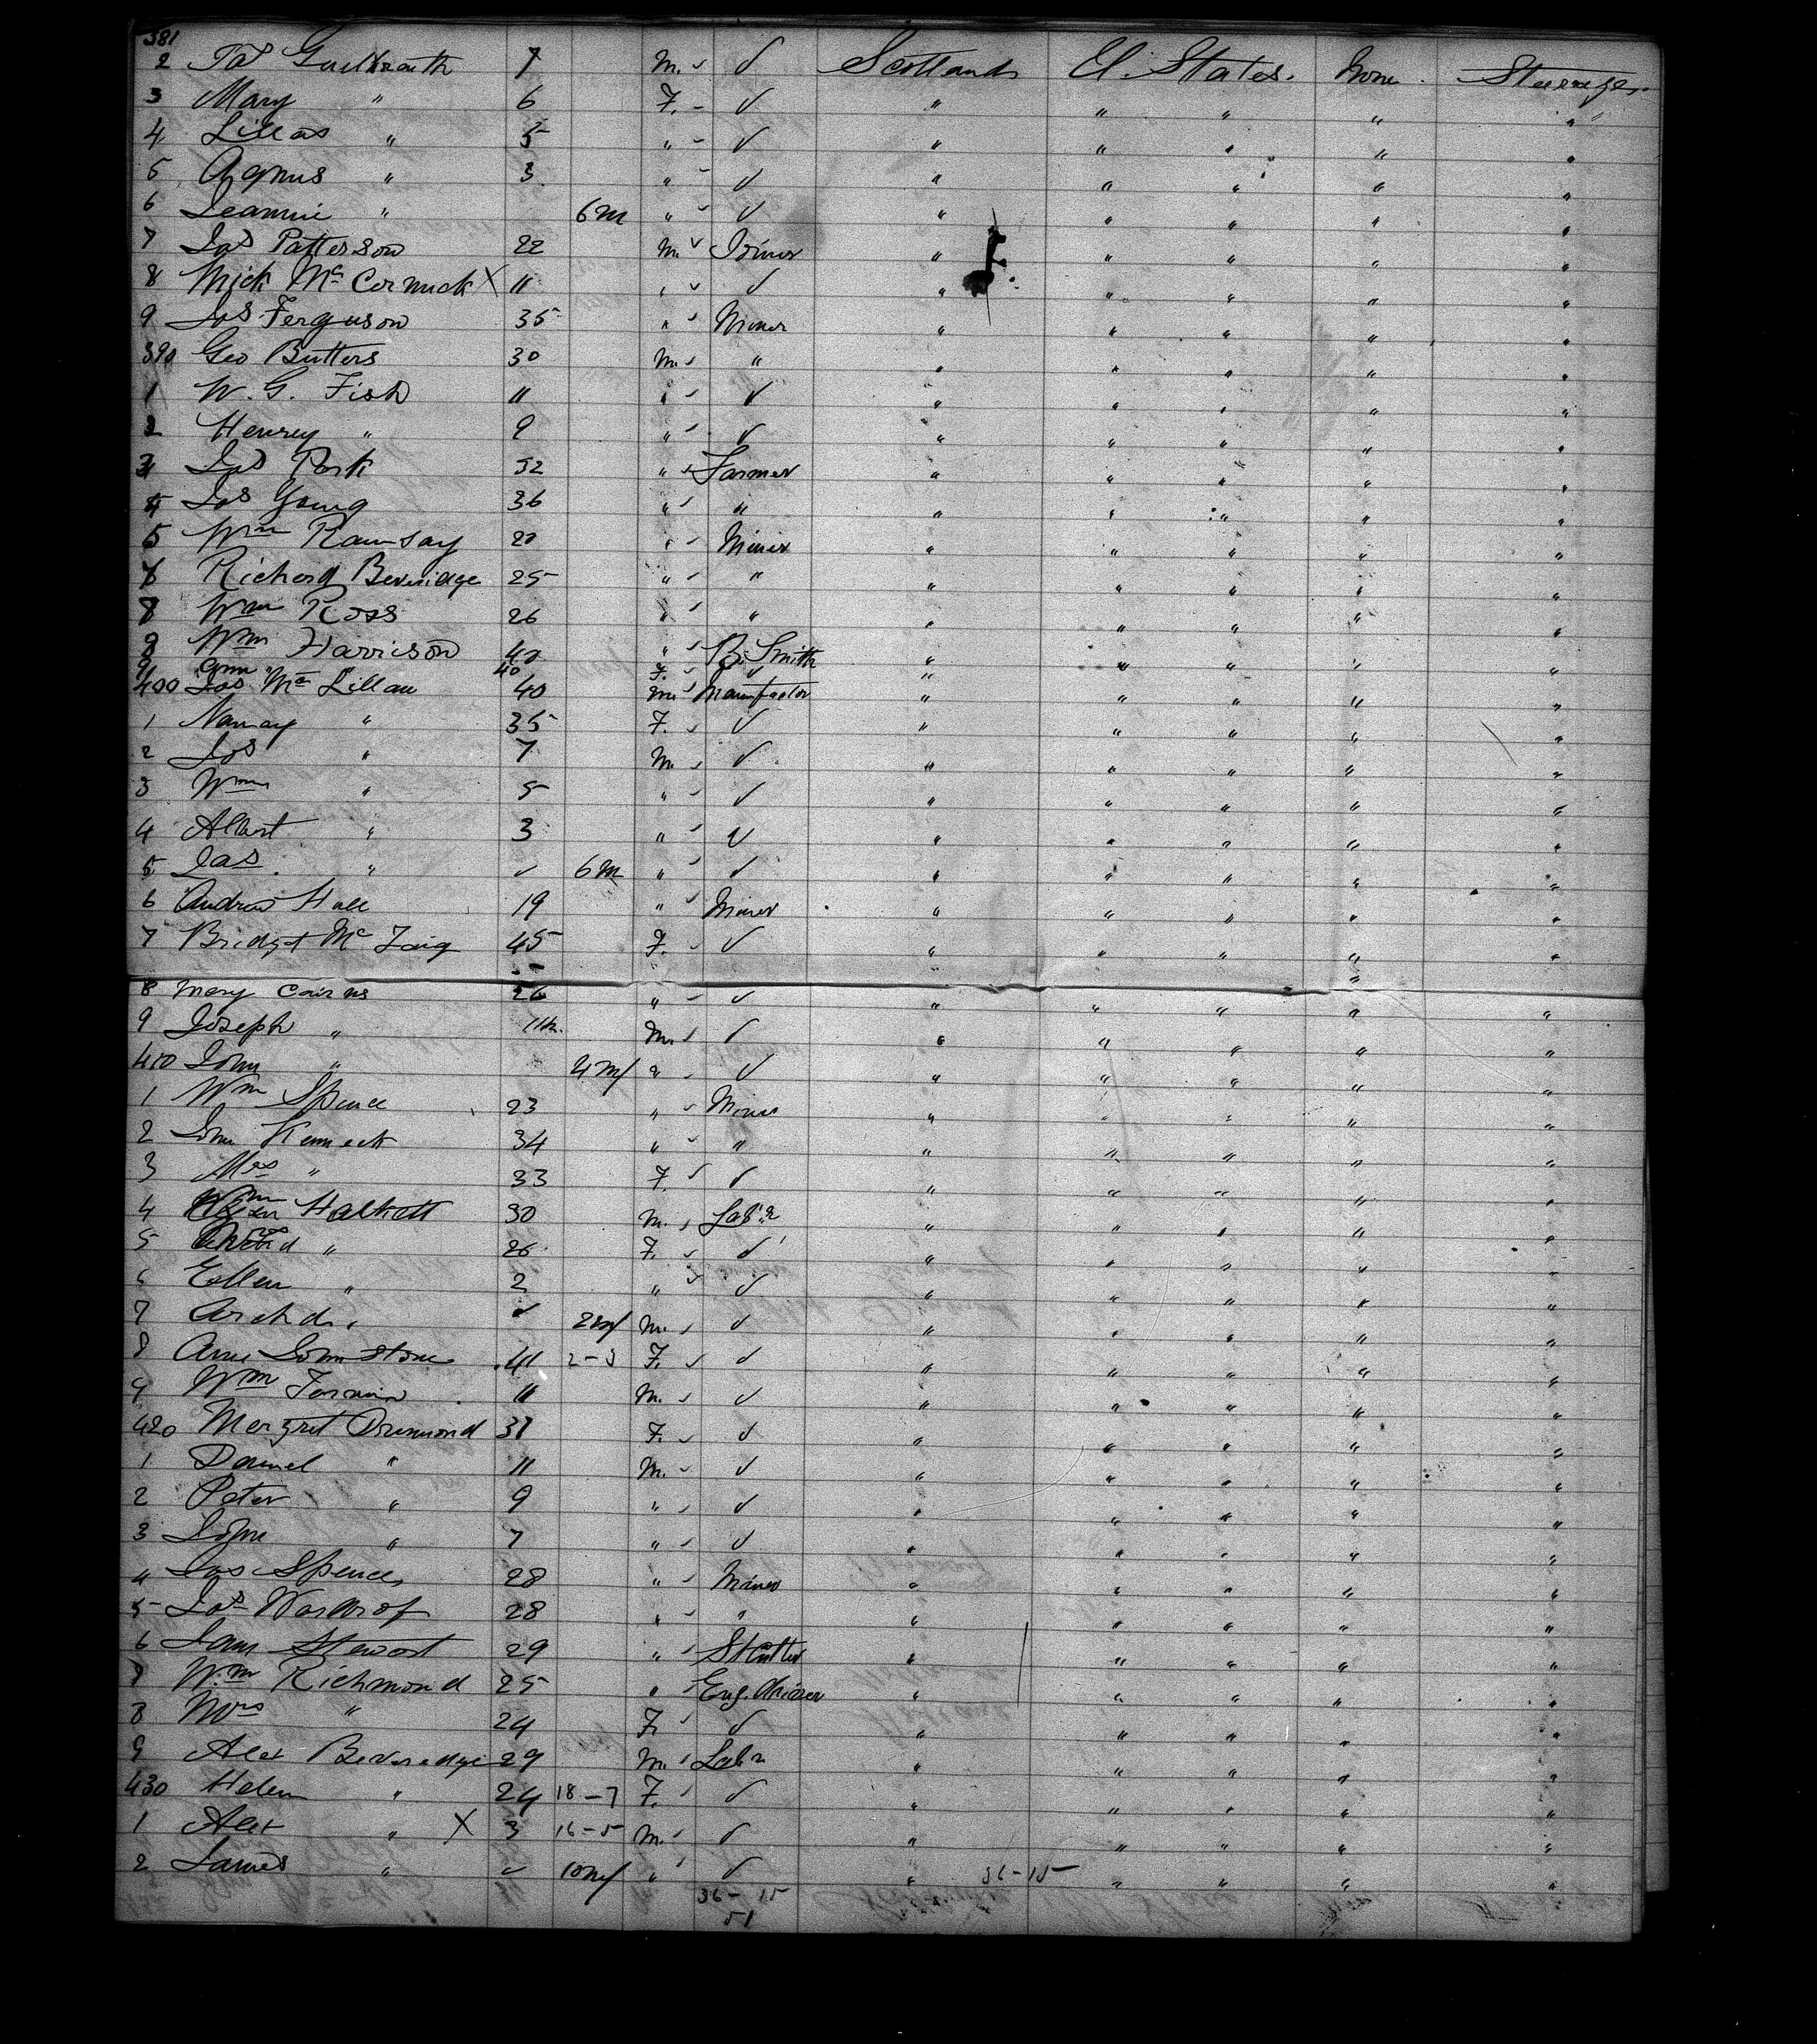 381
2 Jas Guelbraith 7 M. ✓ ✓ Scotland U. States. None. Steerage.
3 Mary " 6 F. - ✓ " " " " "
4 Lillas " 5 " - ✓ " " " " "
5 Agnus " 3 " - ✓ " " " " "
6 Jeannie " 6 m " ✓ ✓ " " " " "
7 Jas Patterson 22 M. ✓ Joiner " " " " "
8 Mick Mc Cormick X 11 " ✓ ✓ " " " " "
9 Jas Ferguson 35 " ✓ Miner " " " " "
390 Geo Butters 30 M. ✓ " " " " " "
1 W. G. Fish 11 " ✓ ✓ " " " " "
2 Henrey " 9 " - ✓ " " " " "
3 Jas Park 32 " ✓ Farmer " " " " "
4 Jas Young 36 " ✓ " " " " " "
5 Wm Ramsay 20 " ✓ Miner " " " " "
6 Richard Beveridge 25 " ✓ " " " " " "
8 Wm Ross 26 " ✓ " " " " " "
8 Wm Harrison 40 " ✓ B. Smith " " " " "
9 Ann " 40 F. ✓ ✓ "
400 Jas Mc Lillan 40 M. ✓ Manufactor " " " " "
1 Nancy " 35 F. ✓ ✓ " " " " "
2 Jos " 7 M. ✓ ✓ " " " " "
3 Wm " 5 " ✓ ✓ " " " " "
4 Albert " 3 " ✓ ✓ " " " " "
5 Jas. " ✓ 6 m " ✓ ✓ " " " " "
6 Andrew Hall 19 " ✓ Miner " " " " "
7 Bridget Mc 45 F. ✓ ✓ " " " " "
8 Mary Cairns 26 " ✓ ✓ " " " " "
9 Joseph " M. ✓ ✓ " " " " "
410 John " 4 m " ✓ ✓ " " " " "
1 Wm Spence 23 " ✓ Miner " " " " "
2 John Kenneck 34 " ✓ " " " " " "
3 Mrs " 33 F. ✓ ✓ " " " " "
4 Wm Halkett 30 M. ✓ Labr " " " " "
5 Mrs " 26 F. ✓ ✓ " " " " "
6 Eallen " 2 " ✓ ✓ " " " " "
7 Archd " ✓ M. ✓ ✓ " " " " "
8 Ann Johnstone 41 2-3 F. ✓ ✓ " " " " "
9 Wm 11 M. ✓ ✓ " " " " "
420 Margret Drumond 31 F. ✓ ✓ " " " " "
1 Daniel " 11 M. ✓ ✓ " " " " "
2 Peter " 9 " ✓ ✓ " " " " "
3 John " 7 " ✓ ✓ " " " " "
4 Jas Spence 28 " ✓ Miner " " " " "
5 Jas 28 " ✓ " " " " " "
6 Stewart 29 " ✓ St Cutter " " " " "
7 Wm Richmond 25 " ✓ Eng. Driver " " " " "
8 Mrs " 24 F. ✓ ✓ " " " " "
9 Alex Beveredge 29 M. ✓ Labr " " " " "
430 Helen " 24 18-7 F. ✓ ✓ " " " " "
1 Alex " X 3 16-5 M. ✓ ✓ " " " " "
2 James " ✓ 10 m " ✓ ✓ " 36-15 " " " "
36-15
51